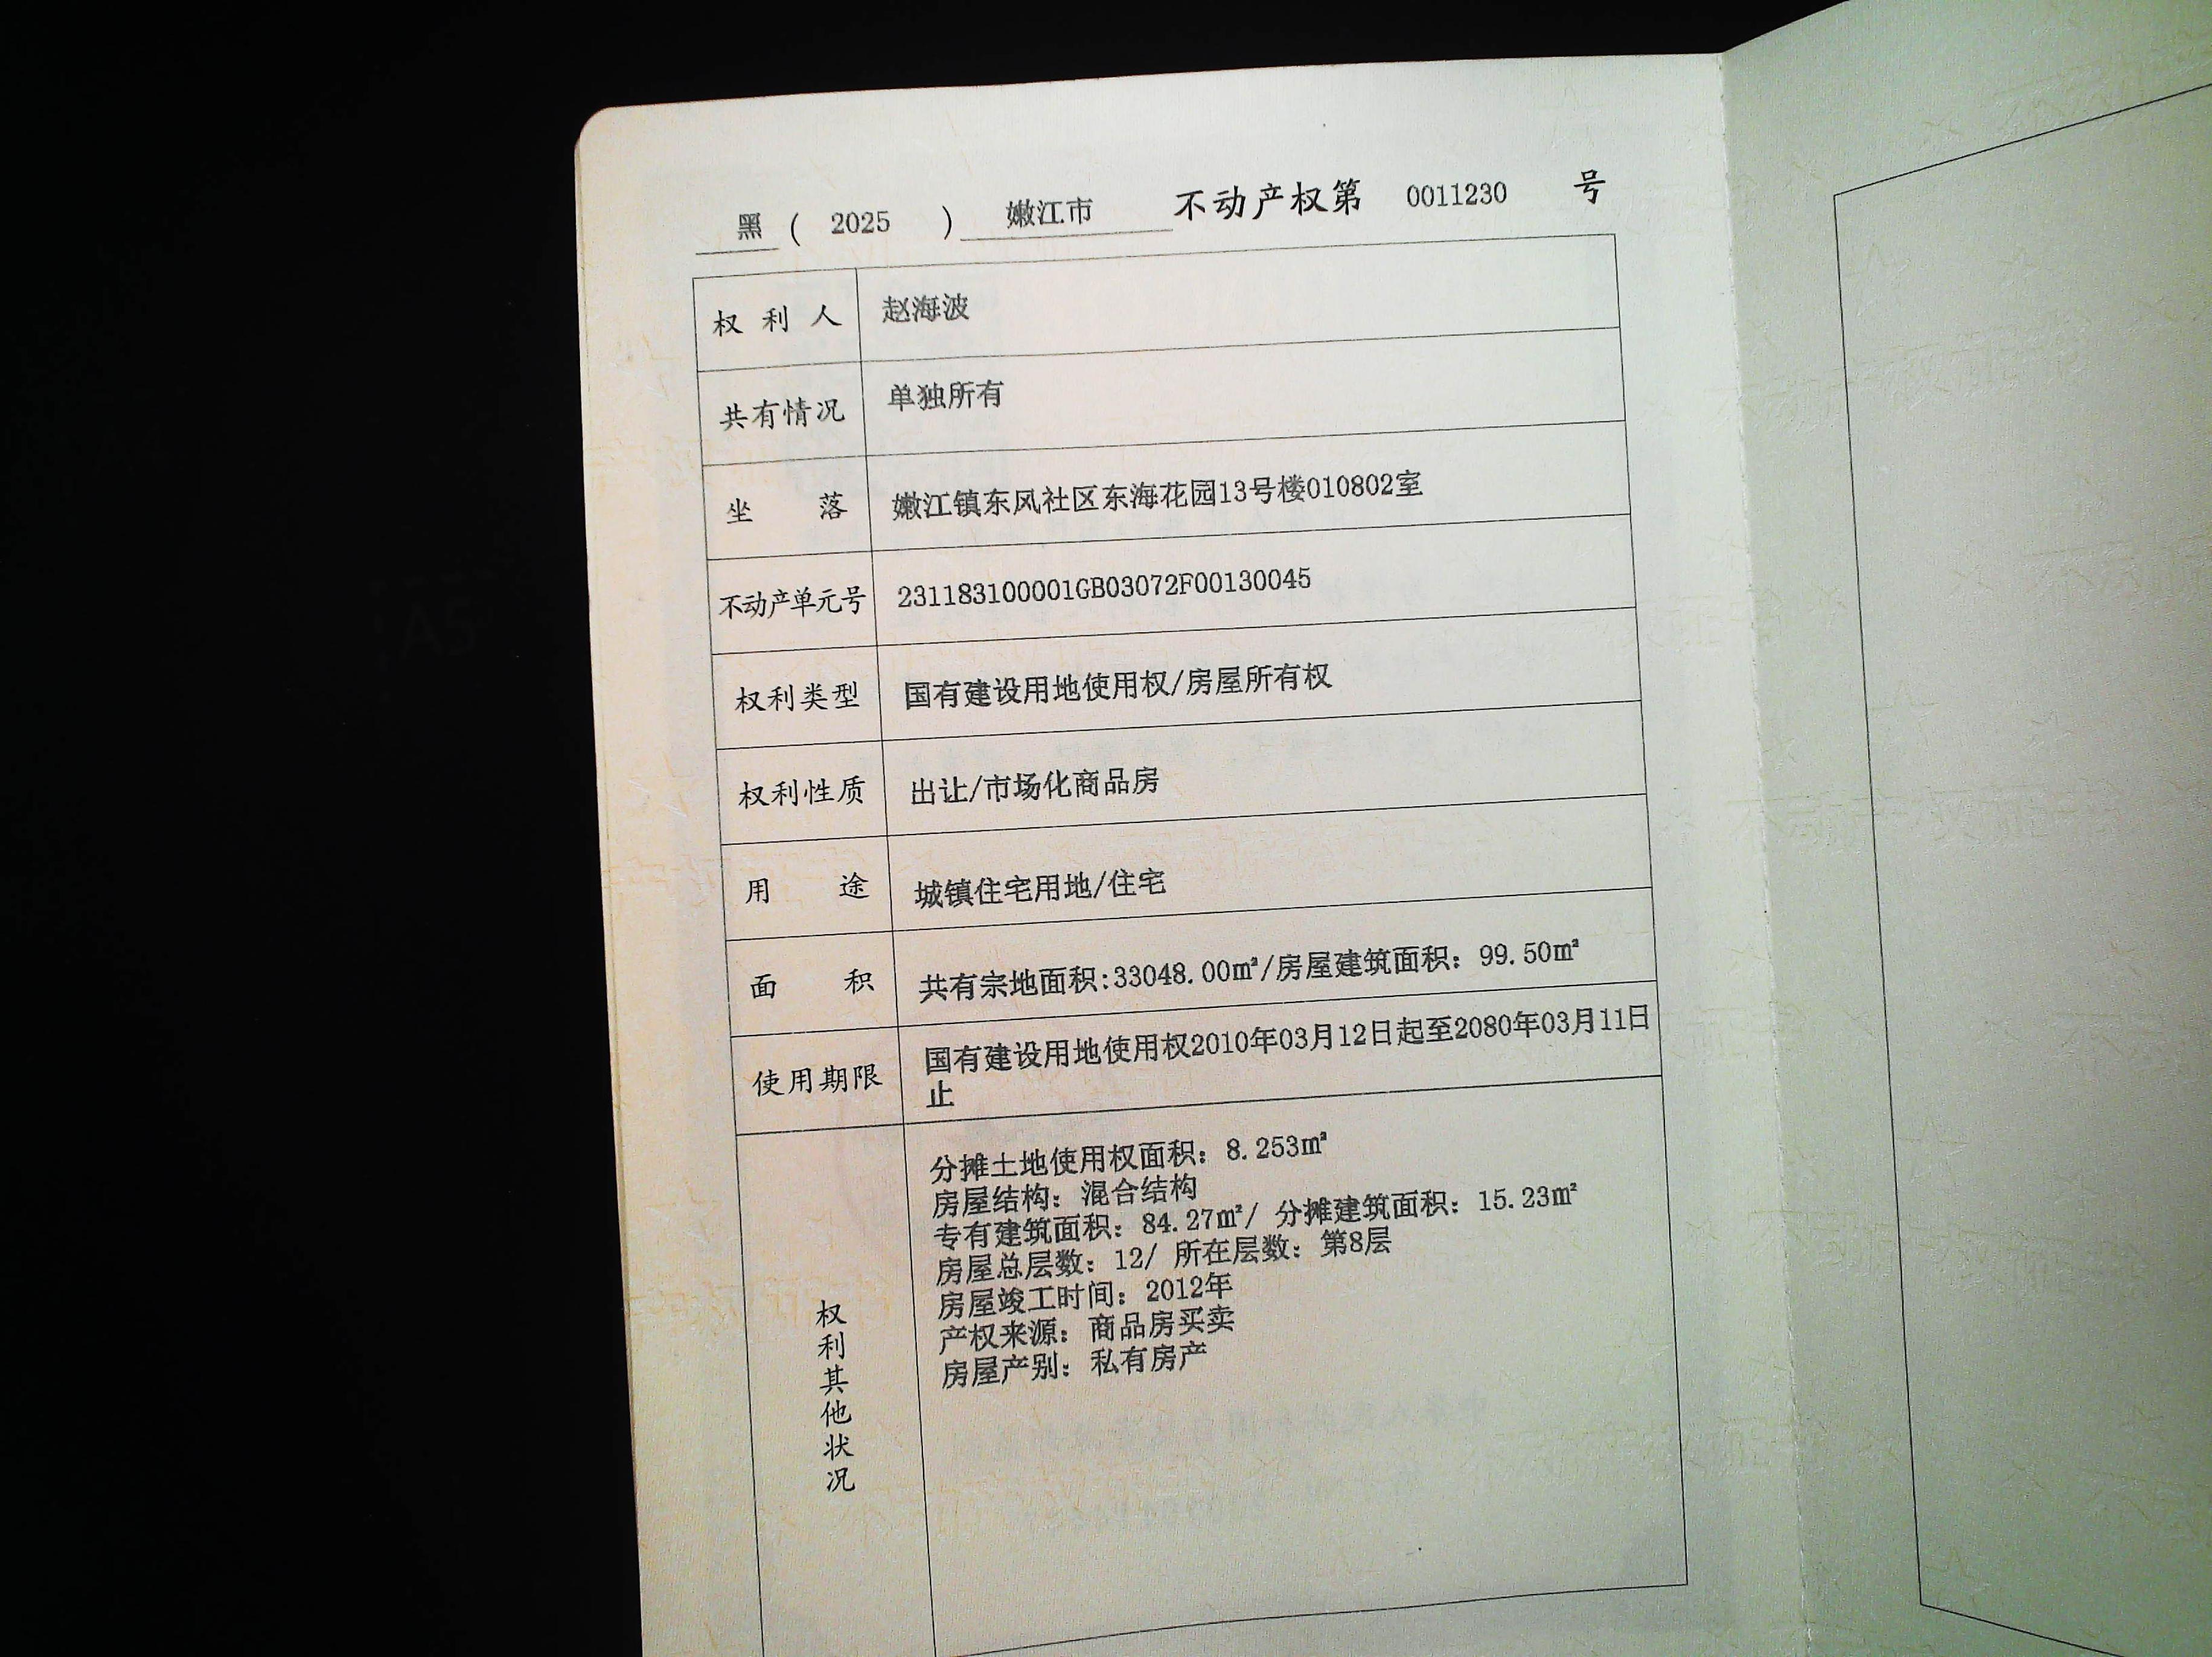 黑 ( 2025 ) 嫩江市 不动产权第 0011230 号
权利人 赵海波
共有情况 单独所有
坐落 嫩江镇东风社区东海花园13号楼010802室
不动产单元号 231183100001GB03072F00130045
权利类型 国有建设用地使用权/房屋所有权
权利性质 出让/市场化商品房
用途 城镇住宅用地/住宅
面积 共有宗地面积:33048.00㎡/房屋建筑面积：99.50㎡
使用期限 国有建设用地使用权2010年03月12日起至2080年03月11日
止
权利其他状况
分摊土地使用权面积：8.253㎡
房屋结构：混合结构
专有建筑面积：84.27㎡/ 分摊建筑面积：15.23㎡
房屋总层数：12/ 所在层数：第8层
房屋竣工时间：2012年
产权来源：商品房买卖
房屋产别：私有房产